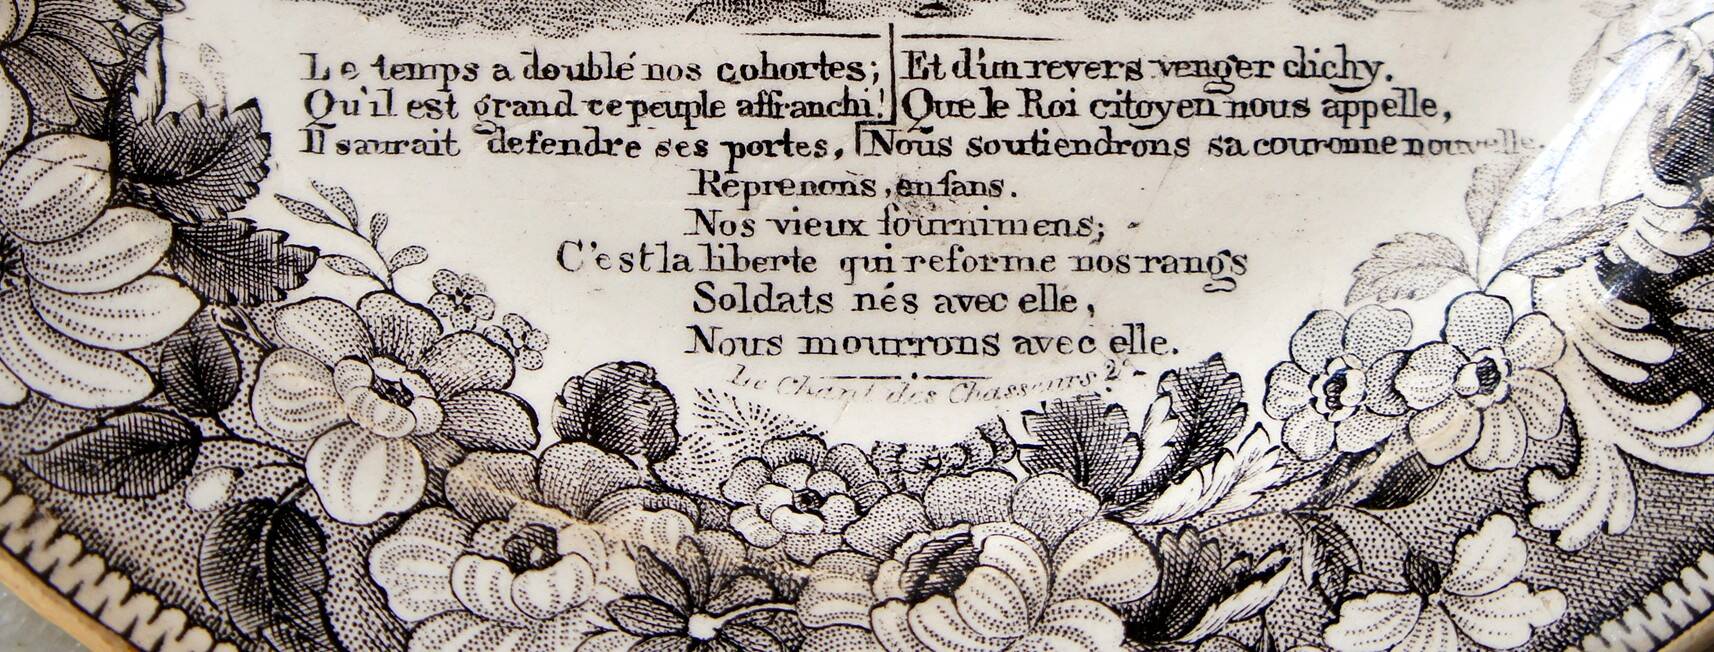 Le temps a doublé nos cohortes;
Qu'il est grand ce peuple affranchi!
Il saurait defendre ses portes,
Et d'un revers venger clichy.
Que le Roi citoyen nous appelle,
Nous soutiendrons sa couronne nouvelle.
Reprenons, enfans.
Nos vieux fournimens;
C'est la liberte qui reforme nos rangs
Soldats nés avec elle,
Nous mourrons avec elle.
Le Chant des Chasseurs. 2e